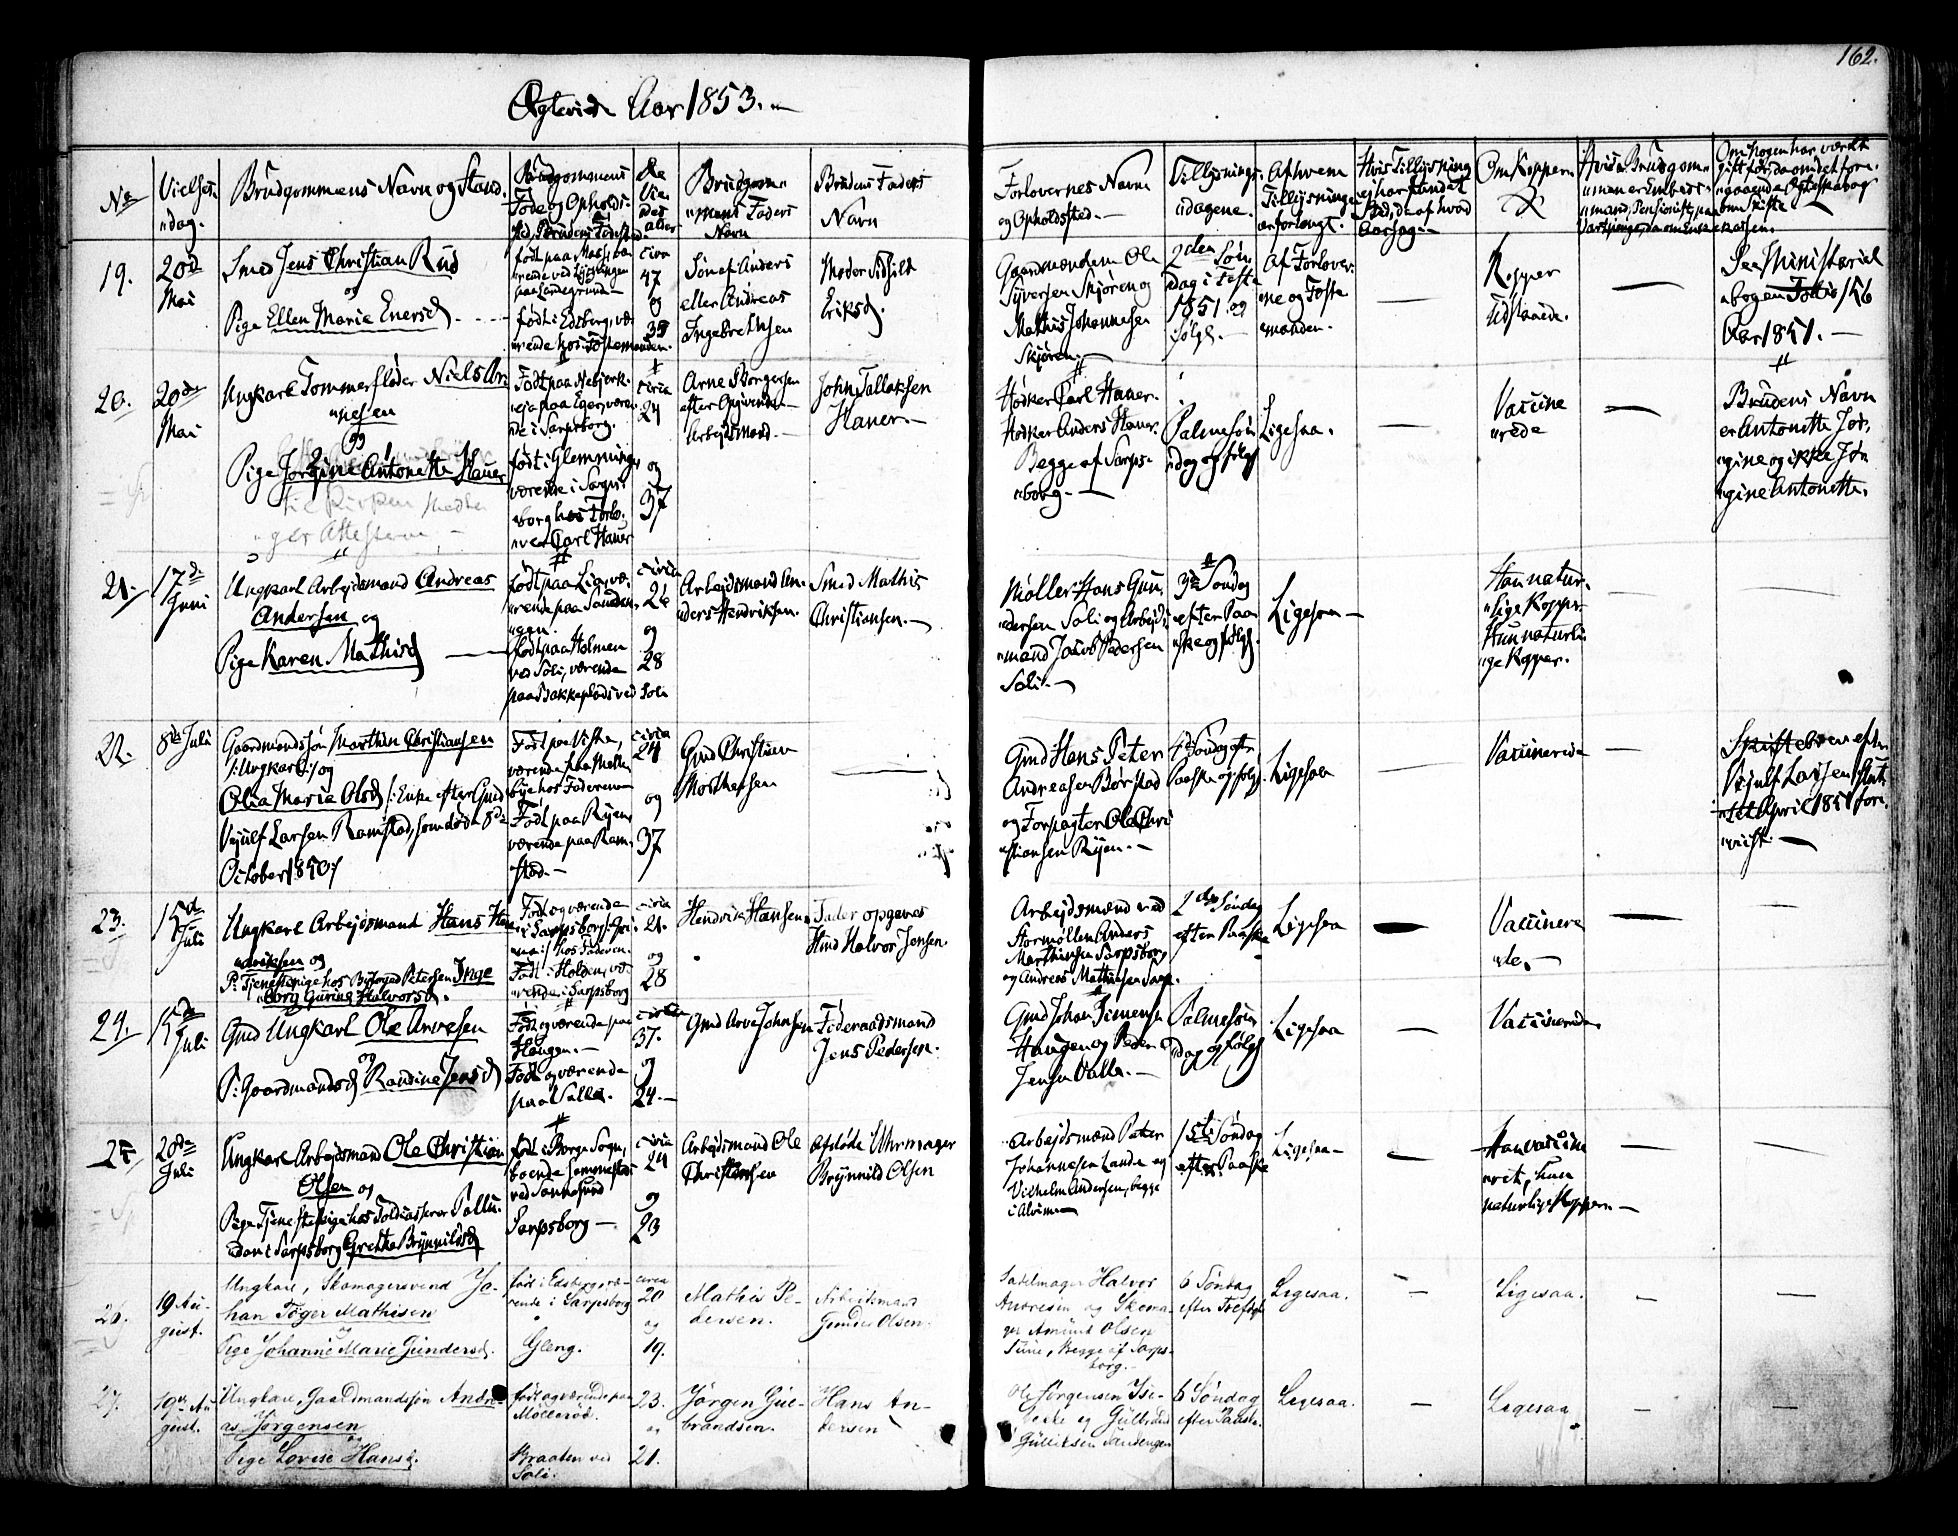 162.
Ægtevide Aar 1853.
No
Vielses-
dag.
Brudgommens Navn og Stand.
Brudgommens
Føde og Opholds-
sted, Brudens Fødested.
Brudgom-
mens Faders
Navn
Brudens Faders
Navn
Forlovernes Navn
og Opholdssted.
Tillysnings-
dagene.
Af hvem
Tillysningen
er forlangt.
Hvis Tillysning
ej har fundet
Sted, da af hvad
Aarsag.
Om Kopper
Hvis Brudgom-
men er Embeds-
mand, Pensionist,
19.
20de
Mai
Smed Jens Christian Rud
og
Pige Ellen Marie Enersd.
født paa
født i Edsberg, væ-
rende hos Fostermanden.
circa
47
og
39
Søn af Anders
eller Andreas
Ingebrethsen
Moder Sidsild
Eriksd.
Gaardmændene Ole
Syversen Skjøren og
Mathis Johannesen
Skjøren.
2den Søn-
dag i Faste
1851 og
følg.
Af Forlover-
ne og Foste
manden.
Kopper
Udstaaede.
See Ministerial
bogen Folio 156
Aar 1851.
20.
20de
Mai
Ungkarl Tommerfløder Niels Ar-
nesen
og
Pige Jørgine Antonette Hauer
født paa
eje paa Eger, være-
nde i Sarpsborg.
født i Glemminge,
værende i Sarps-
borg hos Forlo-
ver Carl Hauer
circa
24
og
37
Arne Borgersen
efter Opgivende
Arbejdsmand.
John Tallaksen
Hauer.
Høker Carl Hauer.
Høker Anders Hauer.
Begge af Sarps-
borg.
Palmesøn-
dag og følg.
Ligesaa.
Vaccine
rede
Brudens Navn
er Antonette Jør-
gine og ikke Jør
gine Antonette.
21.
17de
Juni
Ungkarl Arbejdsmand Andreas
Andersen og
Pige Karen Mathisd
født paa Lie, væ-
rende paa Sanden-
gen.
født paa Holmen
ved Soli, værende
paa Bakkeplads ved Soli
circa
26
og
28
Arbejdsmand An-
ders Hendriksen.
Smed Mathis
Christiansen.
Møller Hans Gun-
dersen Soli og Arbejds-
mand Jacob Pedersen
Soli.
3die Søndag
efter Paa
ske og følg.
Ligesaa
Han natur-
lige Kopper
Hun naturli-
ge Kopper.
22.
8de Juli
Gaardmandssøn Marthin Christiansen
/: Ungkarl :/ og
Olea Maria Olsd /: Enke efter Gmd
Vejulf Larsen Ramstad, som døde 8de
October 1850 :/
Født paa Viste,
værende paa
hos Faderen
Født paa Ryen,
værende paa Ram-
stad.
circa
24
og
37
Gmd Christian
Morthensen
Gmd Hans Peter
Andreasen Børstad
og Forpagter Ole Chri
stiansen Ryen.
4de Søndag eft.
Paaske og følg.
Ligesaa
Vaccinerede
Skiftebrev efter
Vejulf Larsen Slut-
tet April 1851 fore
vist.
23.
15de
Juli
Ungkarl Arbejdsmand Hans Hen-
driksen og
P. Tjenestepige hos Byfoged Petersen Inge
borg Gurine Halvorsd.
Født og værende
i Sarpsborg
hos Faderen.
Født i Holden, væ-
rende i Sarpsborg
circa
21.
og
28
Hendrik Hansen
Fader opgives
Hmd Halvor Jensen.
Arbejdsmænd ved
Stormøllen Anders
Marthinsen Sarpsborg
og Andreas Mathiesen Sarp.
2den Søndag
efter Paaske
Ligesaa
Vaccinere
de.
24.
15de
Juli
Gmd Ungkarl Ole Arvesen
og
P. Gaardmandsd Randine Jensd
Født og værende paa
Haugen.
Født og værende
paa Valle.
circa
37.
og
24.
Gmd Arve Johnsen
Føderaadsmand
Jens Pedersen.
Gmd Johan Simensen
Haugen og Peder
Jensen Valle.
Palmesøn
dag og følg
Ligesaa
Vaccinerede
25
20de
Juli
Ungkarl Arbejdsmand Ole Christian
Olsen og
Pige Tjenestepige hos Toldkasserer Pallu-
dan i Sarpsborg Grethe Brynnildsd
født i Borge Sogn,
boende
ved Sannesund
Sarpsborg
circa
24
og
23
Arbejdsmand Ole
Christensen
afdøde Uhrmager
Brynnild Olsen
Arbejdsmænd Peter
Johannesen Lande og
Vilhelm Andersen, begge
i Alvim
1ste Søndag
efter Paaske
Ligesaa
Han vaccine
ret, hun
naturlige Kopper.
26.
19 Au-
gust.
Ungkarl, Skomagersvend Jo-
han Tøger Mathisen
og
Pige Johanne Marie Gundersd.
født i Edsberg, væ-
rende i Sarpsborg
Gleng.
circa
20
og
19.
Mathis Pe-
dersen.
Arbeidsmand
Gunder Olsen.
Sadelmager Halvor
Andresen og Skoma-
ger Amund Olsen
Tune, Begge af Sarps-
borg.
6 Søndag
efter Trefold.
Ligesaa.
Ligesaa.
27.
19de Au-
gust.
Ungkarl, Gaardmandssøn Andre-
as Jørgensen
og
Pige Lovise Hansd.
født og værende paa
Møllerød.
Braaten ved
Soli.
23.
og
21.
Jørgen Gul-
brandsen.
Hans An-
dersen
Ole Jørgensen
og Gulbrand
Gulliksen Sandengen
6 Søndag
efter Paaske.
Ligesaa.
Ligesaa